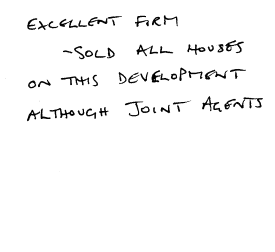 EXCELLENT FIRM
-SOLD ALL HOUSES
ON THIS DEVELOPMENT
ALTHOUGH JOINT AGENTS